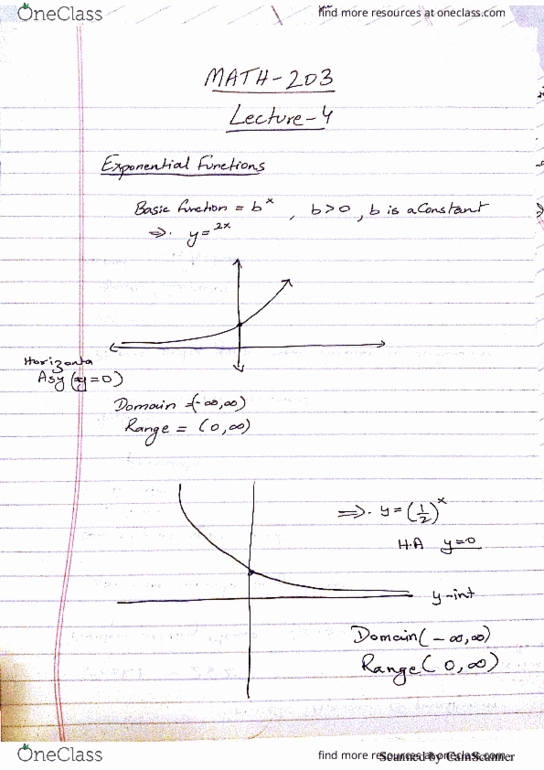 OneClass
find more resources at oneclass.com
MATH-203
Lecture-4
Exponential Functions
Basic function = bˣ , b>0, b is a Constant
⇒. y = ²ˣ
Horizonta
Asy (y=0)
Domain = (-∞,∞)
Range = (0,∞)
⇒. y = (1/2)ˣ
H.A y=0
y-int
Domain (-∞,∞)
Range (0,∞)
OneClass
find more resources at oneclass.com
Scanned by CamScanner